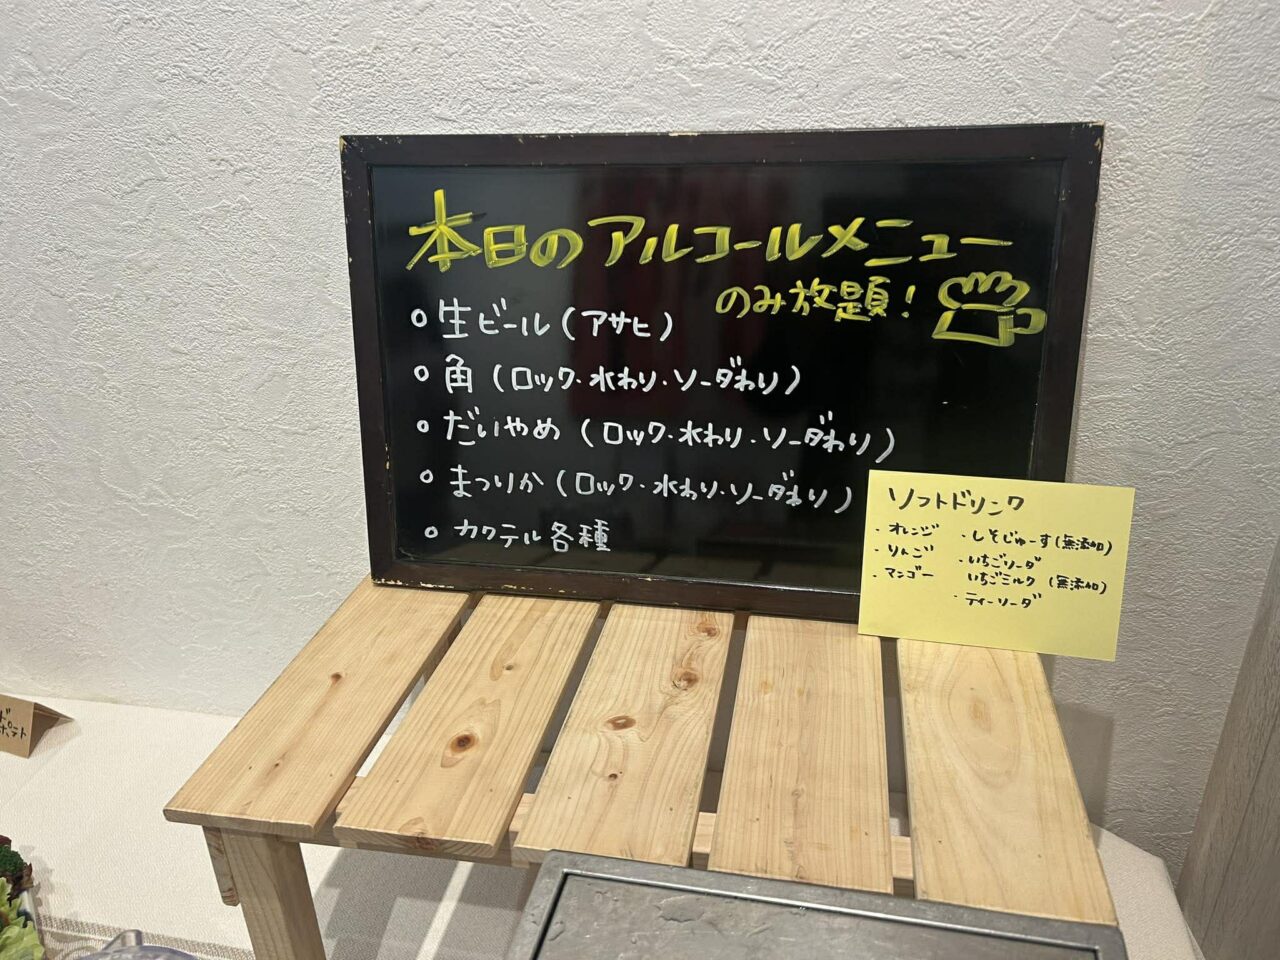 本日のアルコールメニュー
のみ放題!
○ 生ビール(アサヒ)
○ 角(ロック・水わり・ソーダわり)
○ だいやめ(ロック・水わり・ソーダわり)
○ まつりか(ロック・水わり・ソーダわり)
○ カクテル各種
ソフトドリンク
・オレンジ
・りんご
・マンゴー
・しそじゅーす(無添加)
・いちごソーダ
いちごミルク(無添加)
・ティーソーダ
ド
ポテト